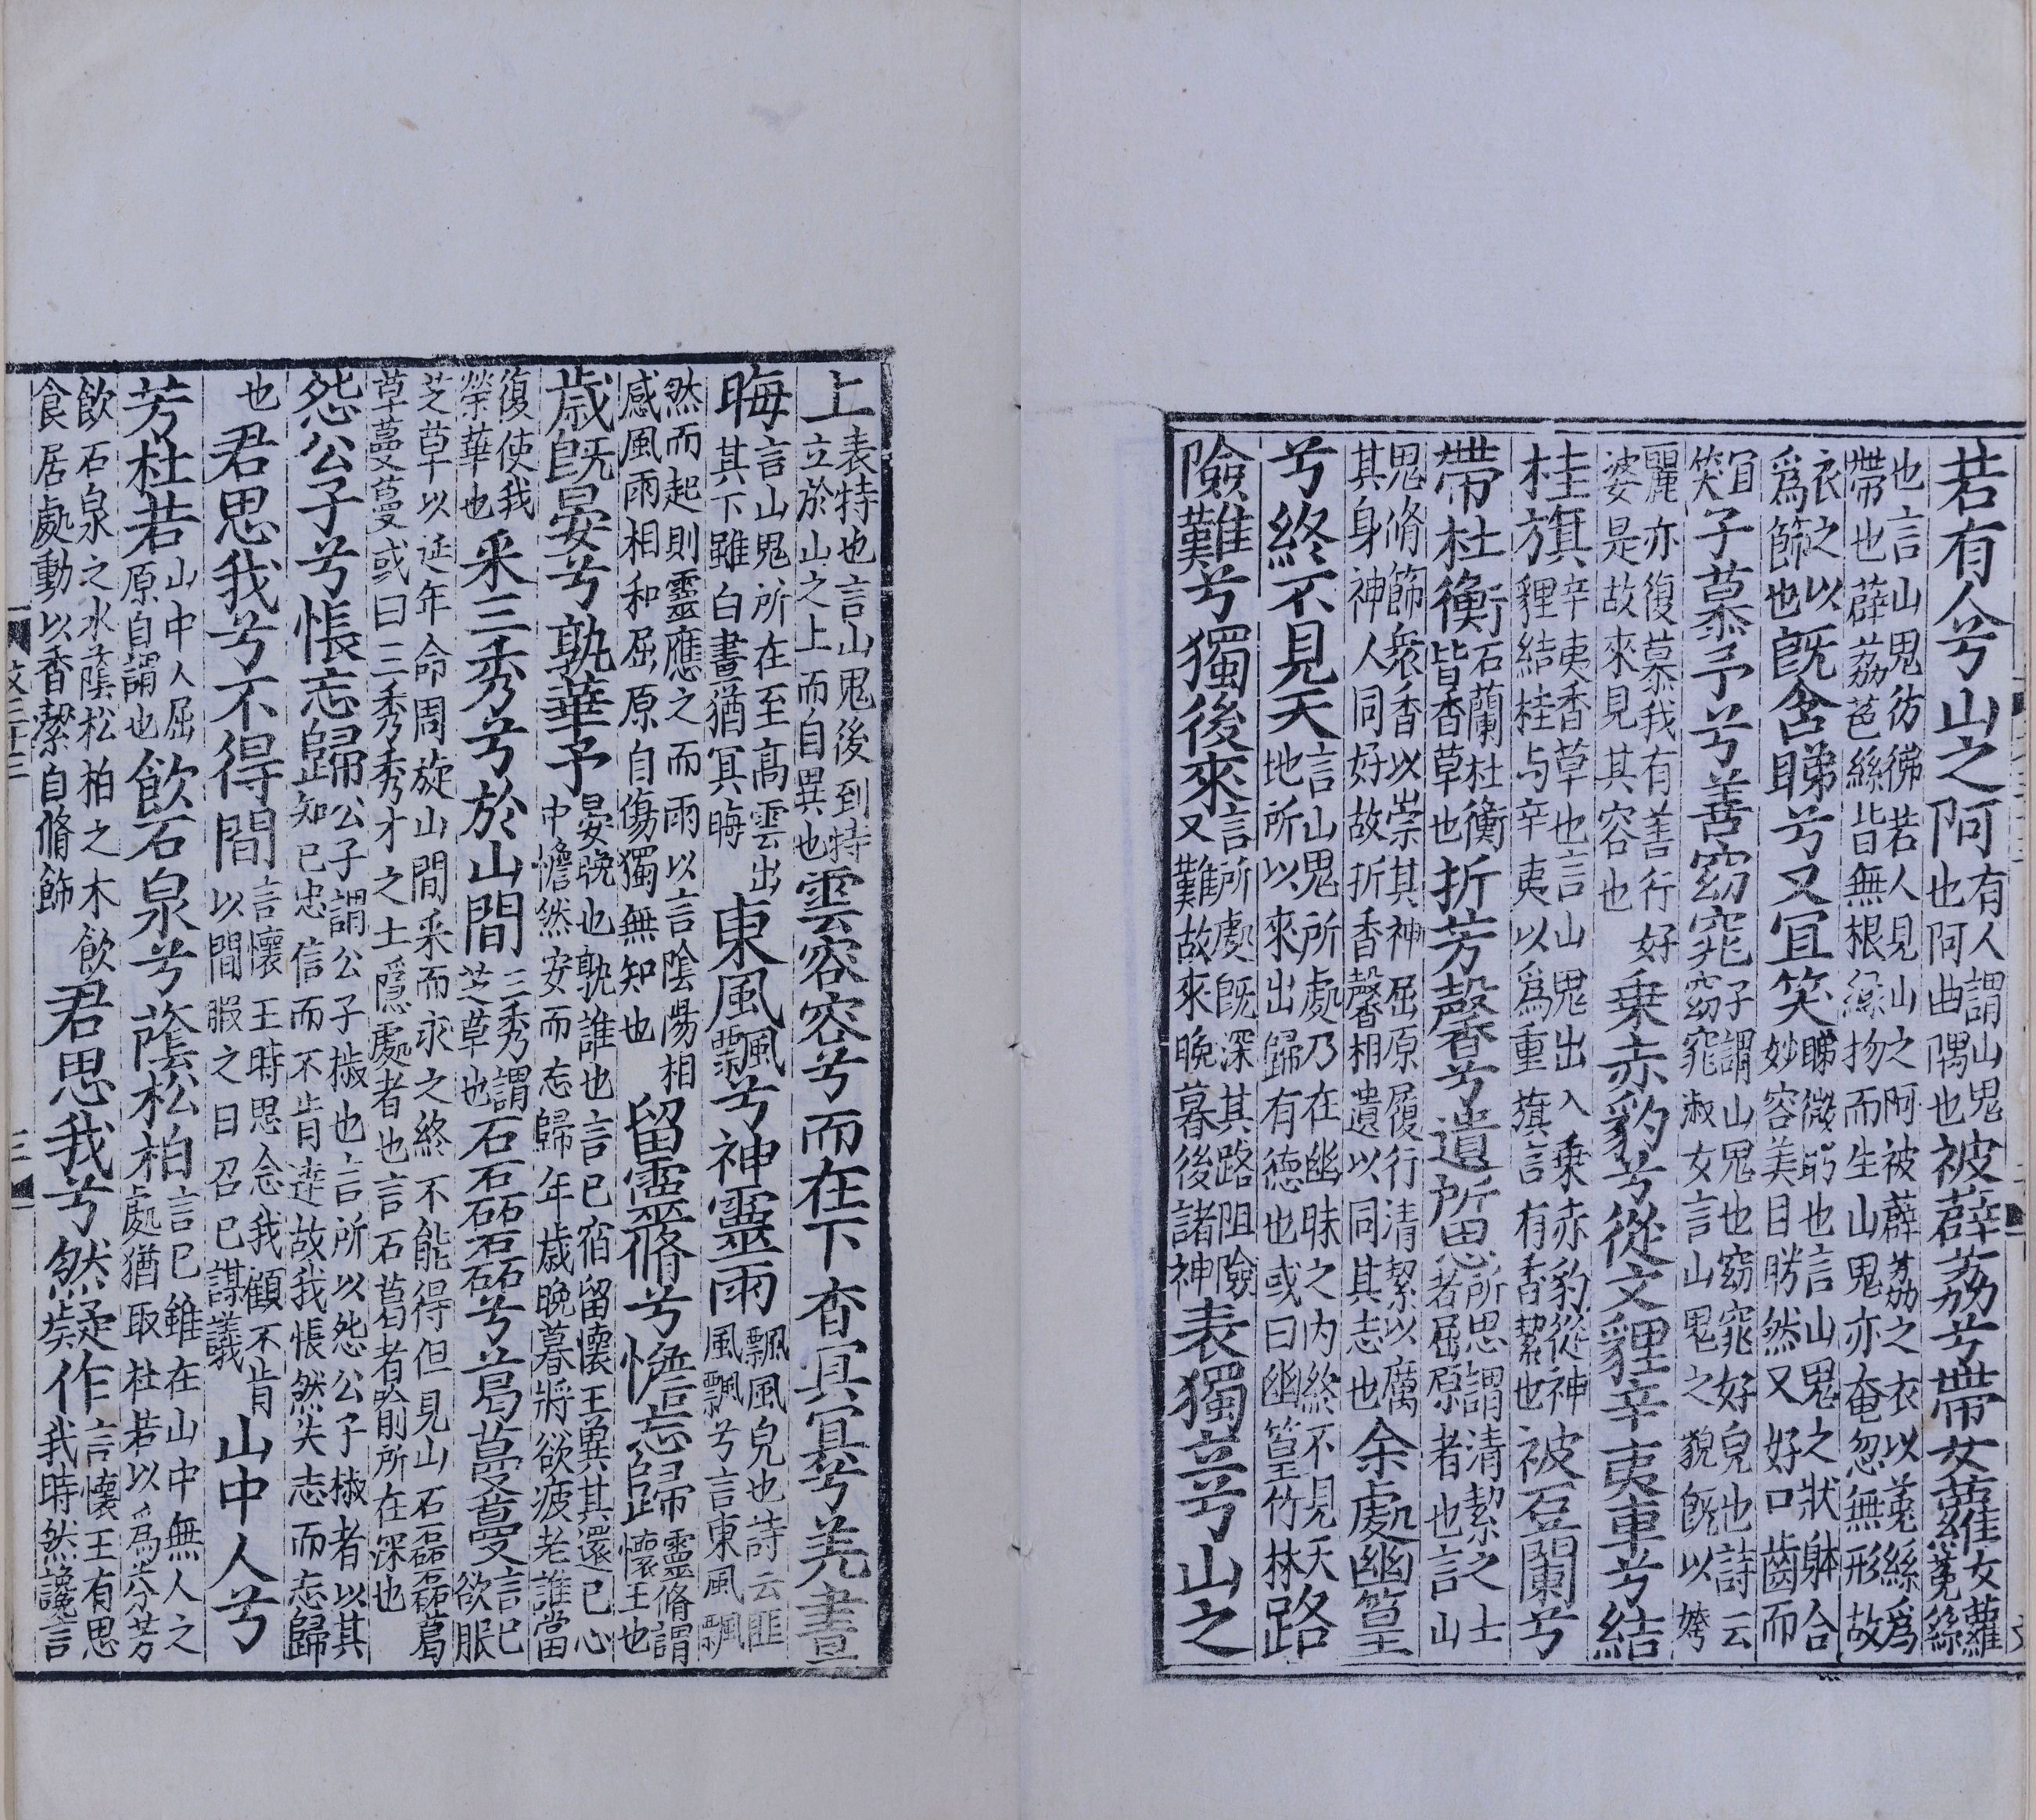 若有人兮山之阿有人謂山鬼也阿曲隅也被薜荔兮帶女蘿女蘿菟絲
也言山鬼彷彿若人見山之阿被薜荔之衣以菟絲爲
帶也薜荔芭絲皆無根緣物而生山鬼亦奄忽無形故
衣之以爲飾也既含睇兮又宜笑睇微眄也言山鬼之狀躰合妙容美目盼然又好口齒而
宜笑子慕予兮善窈窕子謂山鬼也窈窕好皃也詩云窈窕淑女言山鬼之貌既以姱
麗亦復慕我有善行好婆是故來見其容也乗赤豹兮從文貍辛夷車兮結
桂旗辛夷香草也言山鬼出入乗赤豹從神貍結桂与辛夷以爲重旗言有香絜也被石蘭兮
帶杜衡石蘭杜衡皆香草也折芳馨兮遺所思所思謂清絜之士若屈原者也言山
鬼脩飾衆香以崇其神屈原履行清絜以厲其身神人同好故折香馨相遺以同其志也余處幽篁
兮終不見天言山鬼所處乃在幽昧之内終不見天地所以來出歸有德也或曰幽篁竹林路
險難兮獨後來言所處既深其路阻險又難故來晚暮後諸神表獨立兮山之
上表特也言山鬼後到特立於山之上而自異也雲容容兮而在下杳冥冥兮羌晝
晦言山鬼所在至高雲出其下雖白晝猶冥晦東風飄兮神靈雨飄風皃也詩云匪風飄兮言東風飄
然而起則靈應之而雨以言陰陽相感風雨相和屈原自傷獨無知也留靈脩兮憺忘歸靈脩謂懷王也
歳既晏兮孰華予晏晚也孰誰也言已宿留懷王兾其還已心中憺然安而忘歸年歳晚暮將欲疲老誰當
復使我榮華也采三秀兮於山間三秀謂芝草也石磊磊兮葛蔓蔓言已欲服
芝草以延年命周旋山間采而求之終不能得但見山石磊磊葛
草蔓蔓或曰三秀秀才之士隱處者也言石葛者喻所在深也
怨公子兮悵忘歸公子謂公子椒也言所以怨公子椒者以其知已忠信而不肯達故我悵然失志而忘歸
也君思我兮不得間言懷王時思念我顧不肯以間暇之日召已謀議山中人兮
芳杜若山中人屈原自謂也飲石泉兮蔭松柏言已雖在山中無人之處猶取杜若以爲芬芳
飲石泉之水蔭松柏之木飲食居處動以香絜自脩飾君思我兮然疑作言懷王有思我時然讒言